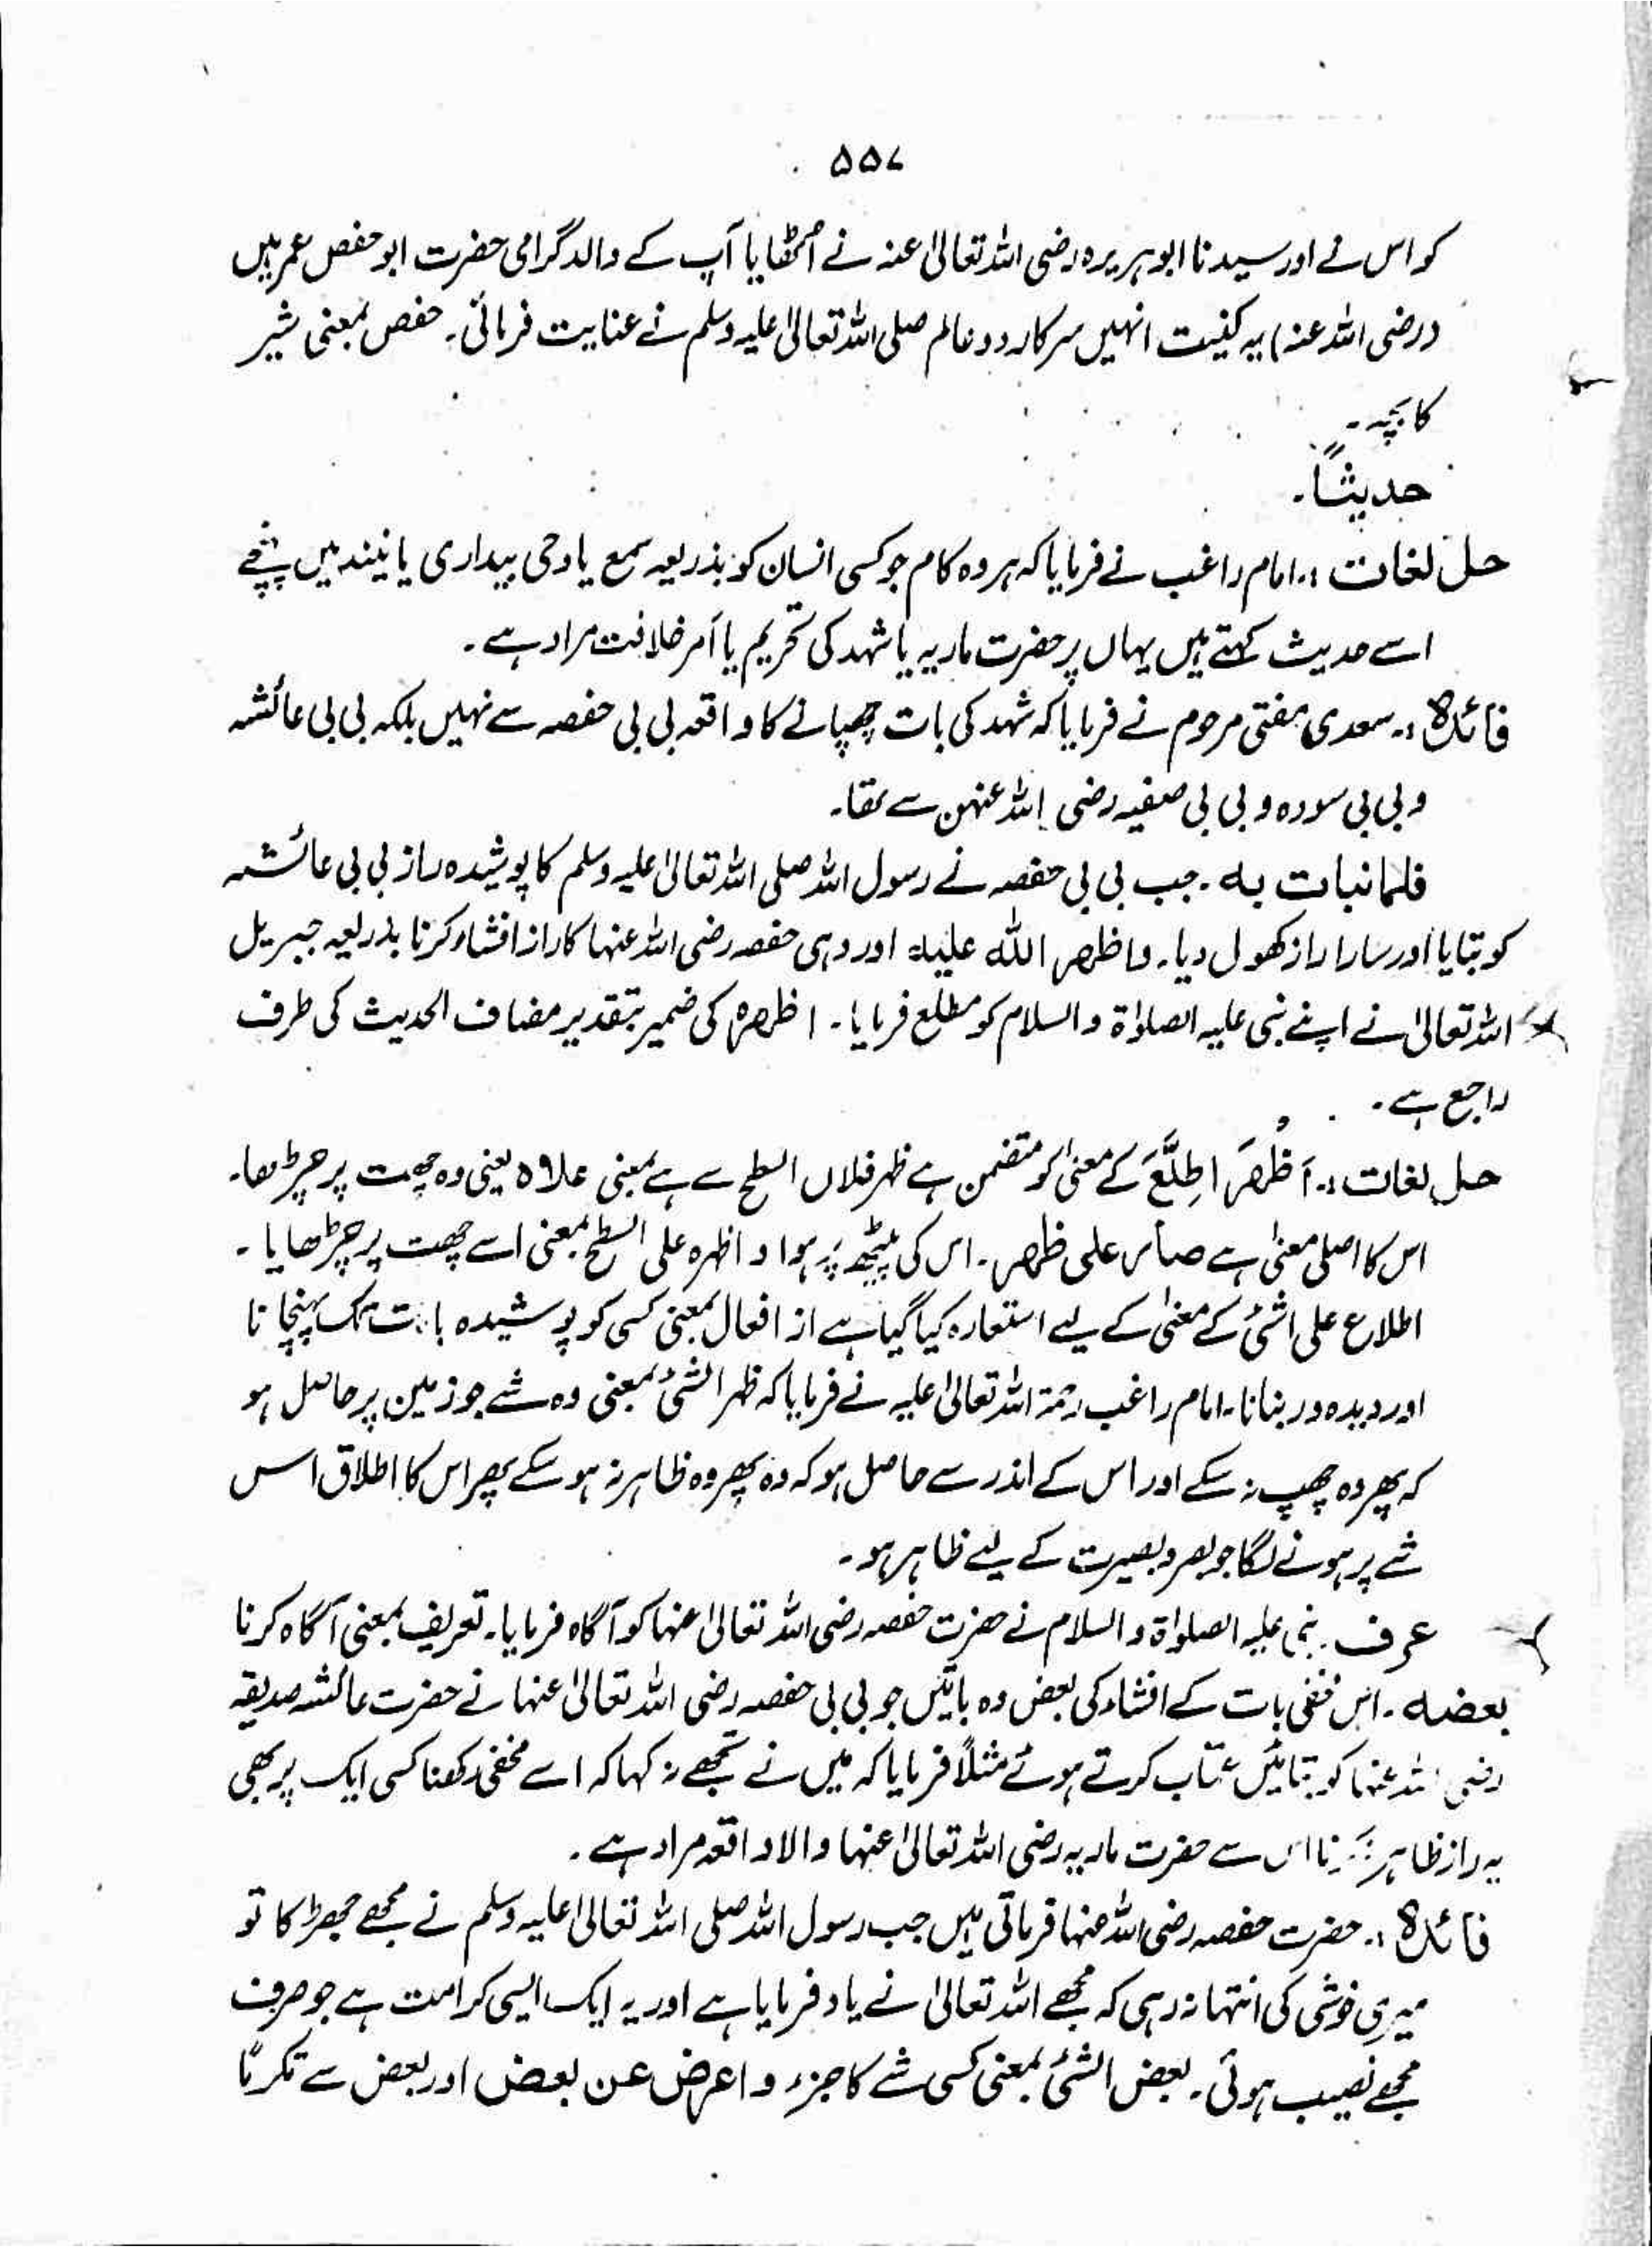 ۵۵۷
کو اس نے اور سیدنا ابوہریرہ رضی اللہ تعالیٰ عنہ نے اٹھایا آپ کے والد گرامی حضرت ابو حفص عمر ہیں
(رضی اللہ عنہ) یہ کنیت انہیں سرکار دو عالم صلی اللہ تعالیٰ علیہ وسلم نے عنایت فرمائی۔ حفص بمعنی شیر
کا بچہ۔
حدیثاً۔
حل لغات :۔ امام راغب نے فرمایا کہ ہر وہ کام جو کسی انسان کو بذریعہ سمع یا وحی بیداری یا نیند میں پہنچے
اسے حدیث کہتے ہیں یہاں پر حضرت ماریہ یا شہد کی تحریم یا اَمر خلافت مراد ہے۔
فائدہ :۔ سعدی مفتی مرحوم نے فرمایا کہ شہد کی بات چھپانے کا واقعہ بی بی حفصہ سے نہیں بلکہ بی بی عائشہ
و بی بی سودہ و بی بی صفیہ رضی اللہ عنہن سے تھا۔
فلما نبات بہ۔ جب بی بی حفصہ نے رسول اللہ صلی اللہ تعالیٰ علیہ وسلم کا پوشیدہ راز بی بی عائشہ
کو بتایا اور سارا راز کھول دیا۔ واظھر اللہ علیہ اور وہی حفصہ رضی اللہ عنہا کا راز افشاء کرنا بذریعہ جبریل
اللہ تعالیٰ نے اپنے نبی علیہ الصلوٰۃ والسلام کو مطلع فرمایا۔ اظھرہ کی ضمیر بتقدیر مضاف الحدیث کی طرف
راجع ہے۔
حل لغات :۔ اَظْھَرَ اطِلَّعَ کے معنیٰ کو متضمن ہے ظہر فلاں السطح سے ہے بمعنی علاہ یعنی وہ چھت پر چڑھا۔
اس کا اصلی معنیٰ ہے صار علی ظھر۔ اس کی پیٹھ پر ہوا و اظہرہ علی السطح بمعنی اسے چھت پر چڑھایا۔
اطلاع علی اشئ کے معنیٰ کے لیے استعارہ کیا گیا ہے از افعال بمعنی کسی کو پوشیدہ بات تک پہنچانا
اور دیدہ ور بنانا۔ امام راغب رحمۃ اللہ تعالیٰ علیہ نے فرمایا کہ ظہر الشئ بمعنی وہ شے جو زمین پر حاصل ہو
کہ پھر وہ چھپ نہ سکے اور اس کے اندر سے حاصل ہو کہ وہ پھر وہ ظاہر نہ ہو سکے پھر اس کا اطلاق اس
شے پر ہونے لگا جو بصر و بصیرت کے لیے ظاہر ہو۔
عرف۔ نبی علیہ الصلوٰۃ والسلام نے حضرت حفصہ رضی اللہ تعالیٰ عنہا کو آگاہ فرمایا۔ تعریف بمعنی آگاہ کرنا
بعضہ۔ اس خفی بات کے افشاء کی بعض وہ باتیں جو بی بی حفصہ رضی اللہ تعالیٰ عنہا نے حضرت عائشہ صدیقہ
رضی اللہ عنہا کو بتائیں عتاب کرتے ہوئے مثلاً فرمایا کہ میں نے تجھے نہ کہا کہ اسے مخفی رکھنا کسی ایک پر بھی
یہ راز ظاہر نہ کرنا اس سے حضرت ماریہ رضی اللہ تعالیٰ عنہا والا واقعہ مراد ہے۔
فائدہ :۔ حضرت حفصہ رضی اللہ عنہا فرماتی ہیں جب رسول اللہ صلی اللہ تعالیٰ علیہ وسلم نے مجھے جھڑکا تو
میری خوشی کی انتہا نہ رہی کہ مجھے اللہ تعالیٰ نے یاد فرمایا ہے اور یہ ایک ایسی کرامت ہے جو صرف
مجھے نصیب ہوئی۔ بعض الشئ بمعنی کسی شے کا جزء و اعرض عن بعض اور بعض سے تکرماً